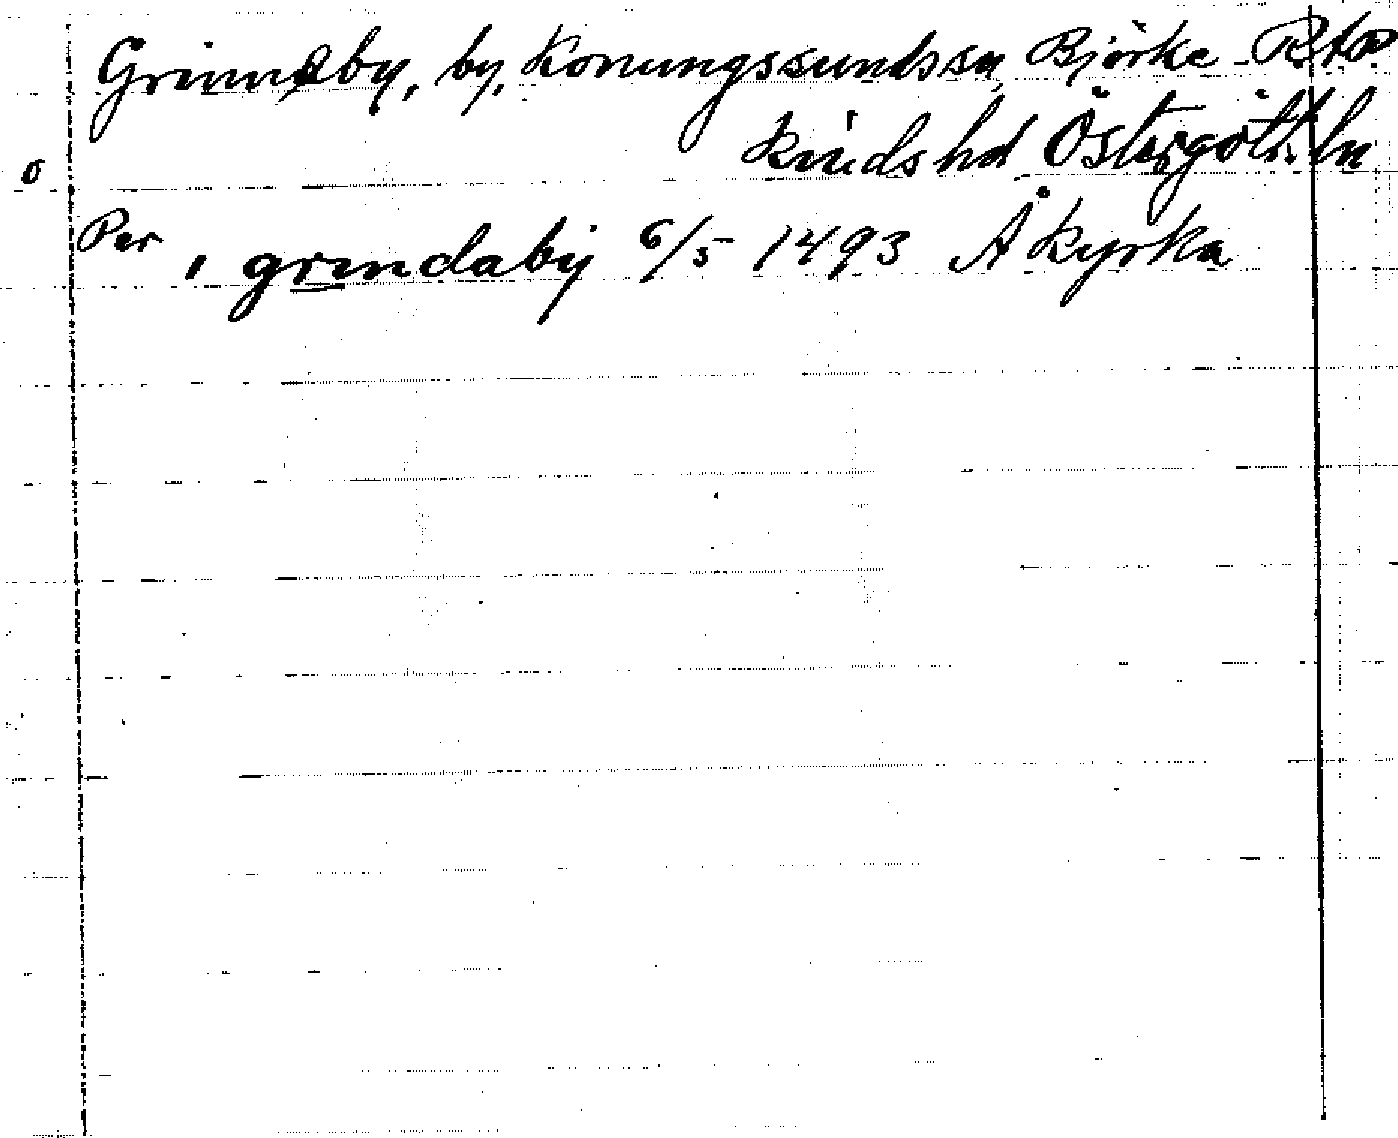 Grinneby, by, Konungssunds sn Björke- RAP
kinds hd Östergötl. ln
o
Per i grindaby 6/5 1493 Å kyrka